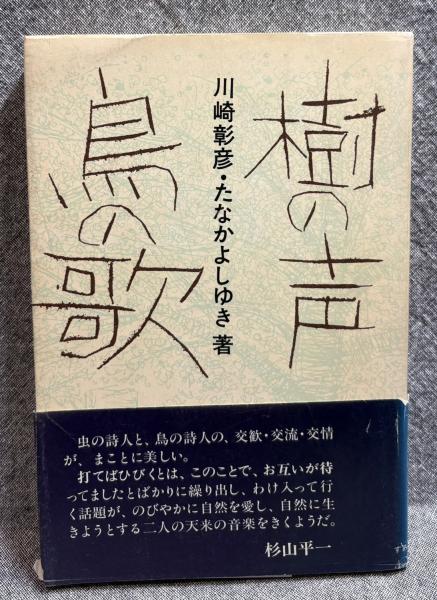 樹の声
鳥の歌
川崎彰彦・たなかよしゆき 著
虫の詩人と、鳥の詩人の、交歓・交流・交情
が、まことに美しい。
打てばひびくとは、このことで、お互いが待
ってましたとばかりに繰り出し、わけ入って行
く話題が、のびやかに自然を愛し、自然に生
きようとする二人の天来の音楽をきくようだ。
杉山平一